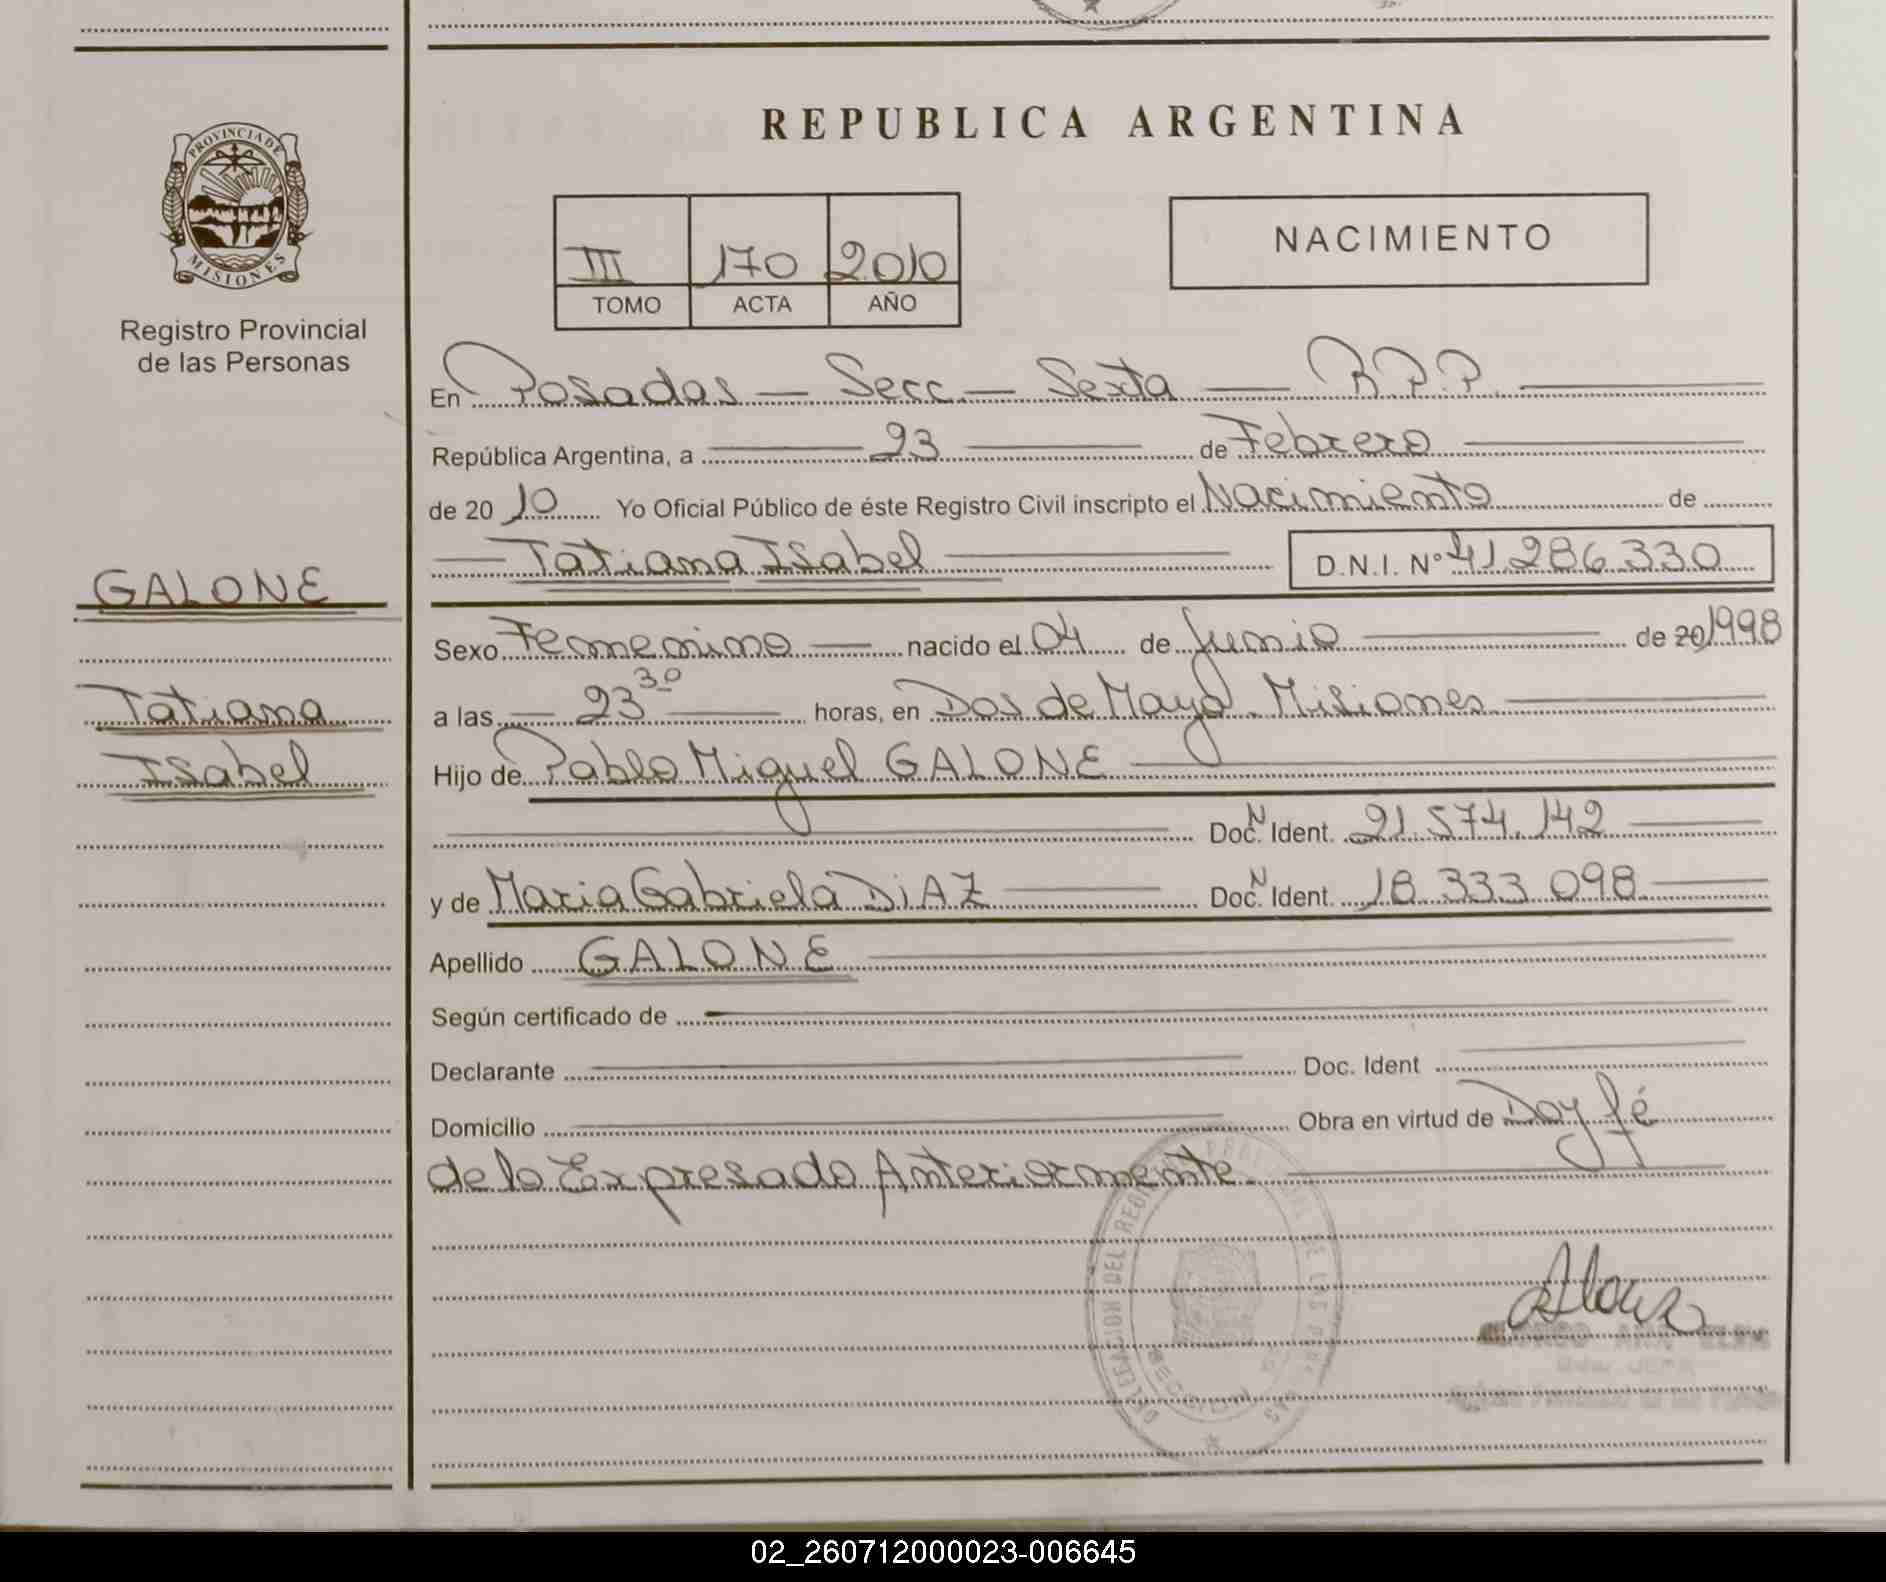 PROVINCIA DE
MISIONES
Registro Provincial
de las Personas
GALONE
Tatiana
Isabel
REPUBLICA ARGENTINA
III 170 2010
TOMO ACTA AÑO
NACIMIENTO
En Posadas — Secc — Sexta — R.P.P.
República Argentina, a 23 de Febrero
de 20 10 Yo Oficial Público de éste Registro Civil inscripto el Nacimiento de
Tatiana Isabel D.N.I. Nº 41.286.330
Sexo Femenino — nacido el 04 de Junio de 20 1998
a las — 23 30 horas, en Dos de Mayo - Misiones
Hijo de Pablo Miguel GALONE
Doc. N Ident. 21.574.142
y de Maria Gabriela DiAZ Doc. N Ident. 18.333.098
Apellido GALONE
Según certificado de
Declarante Doc. Ident
Domicilio Obra en virtud de Doy fé
de lo Expresado Anteriormente.
DELEGACION DEL REGISTRO
SECCION
02_260712000023-006645